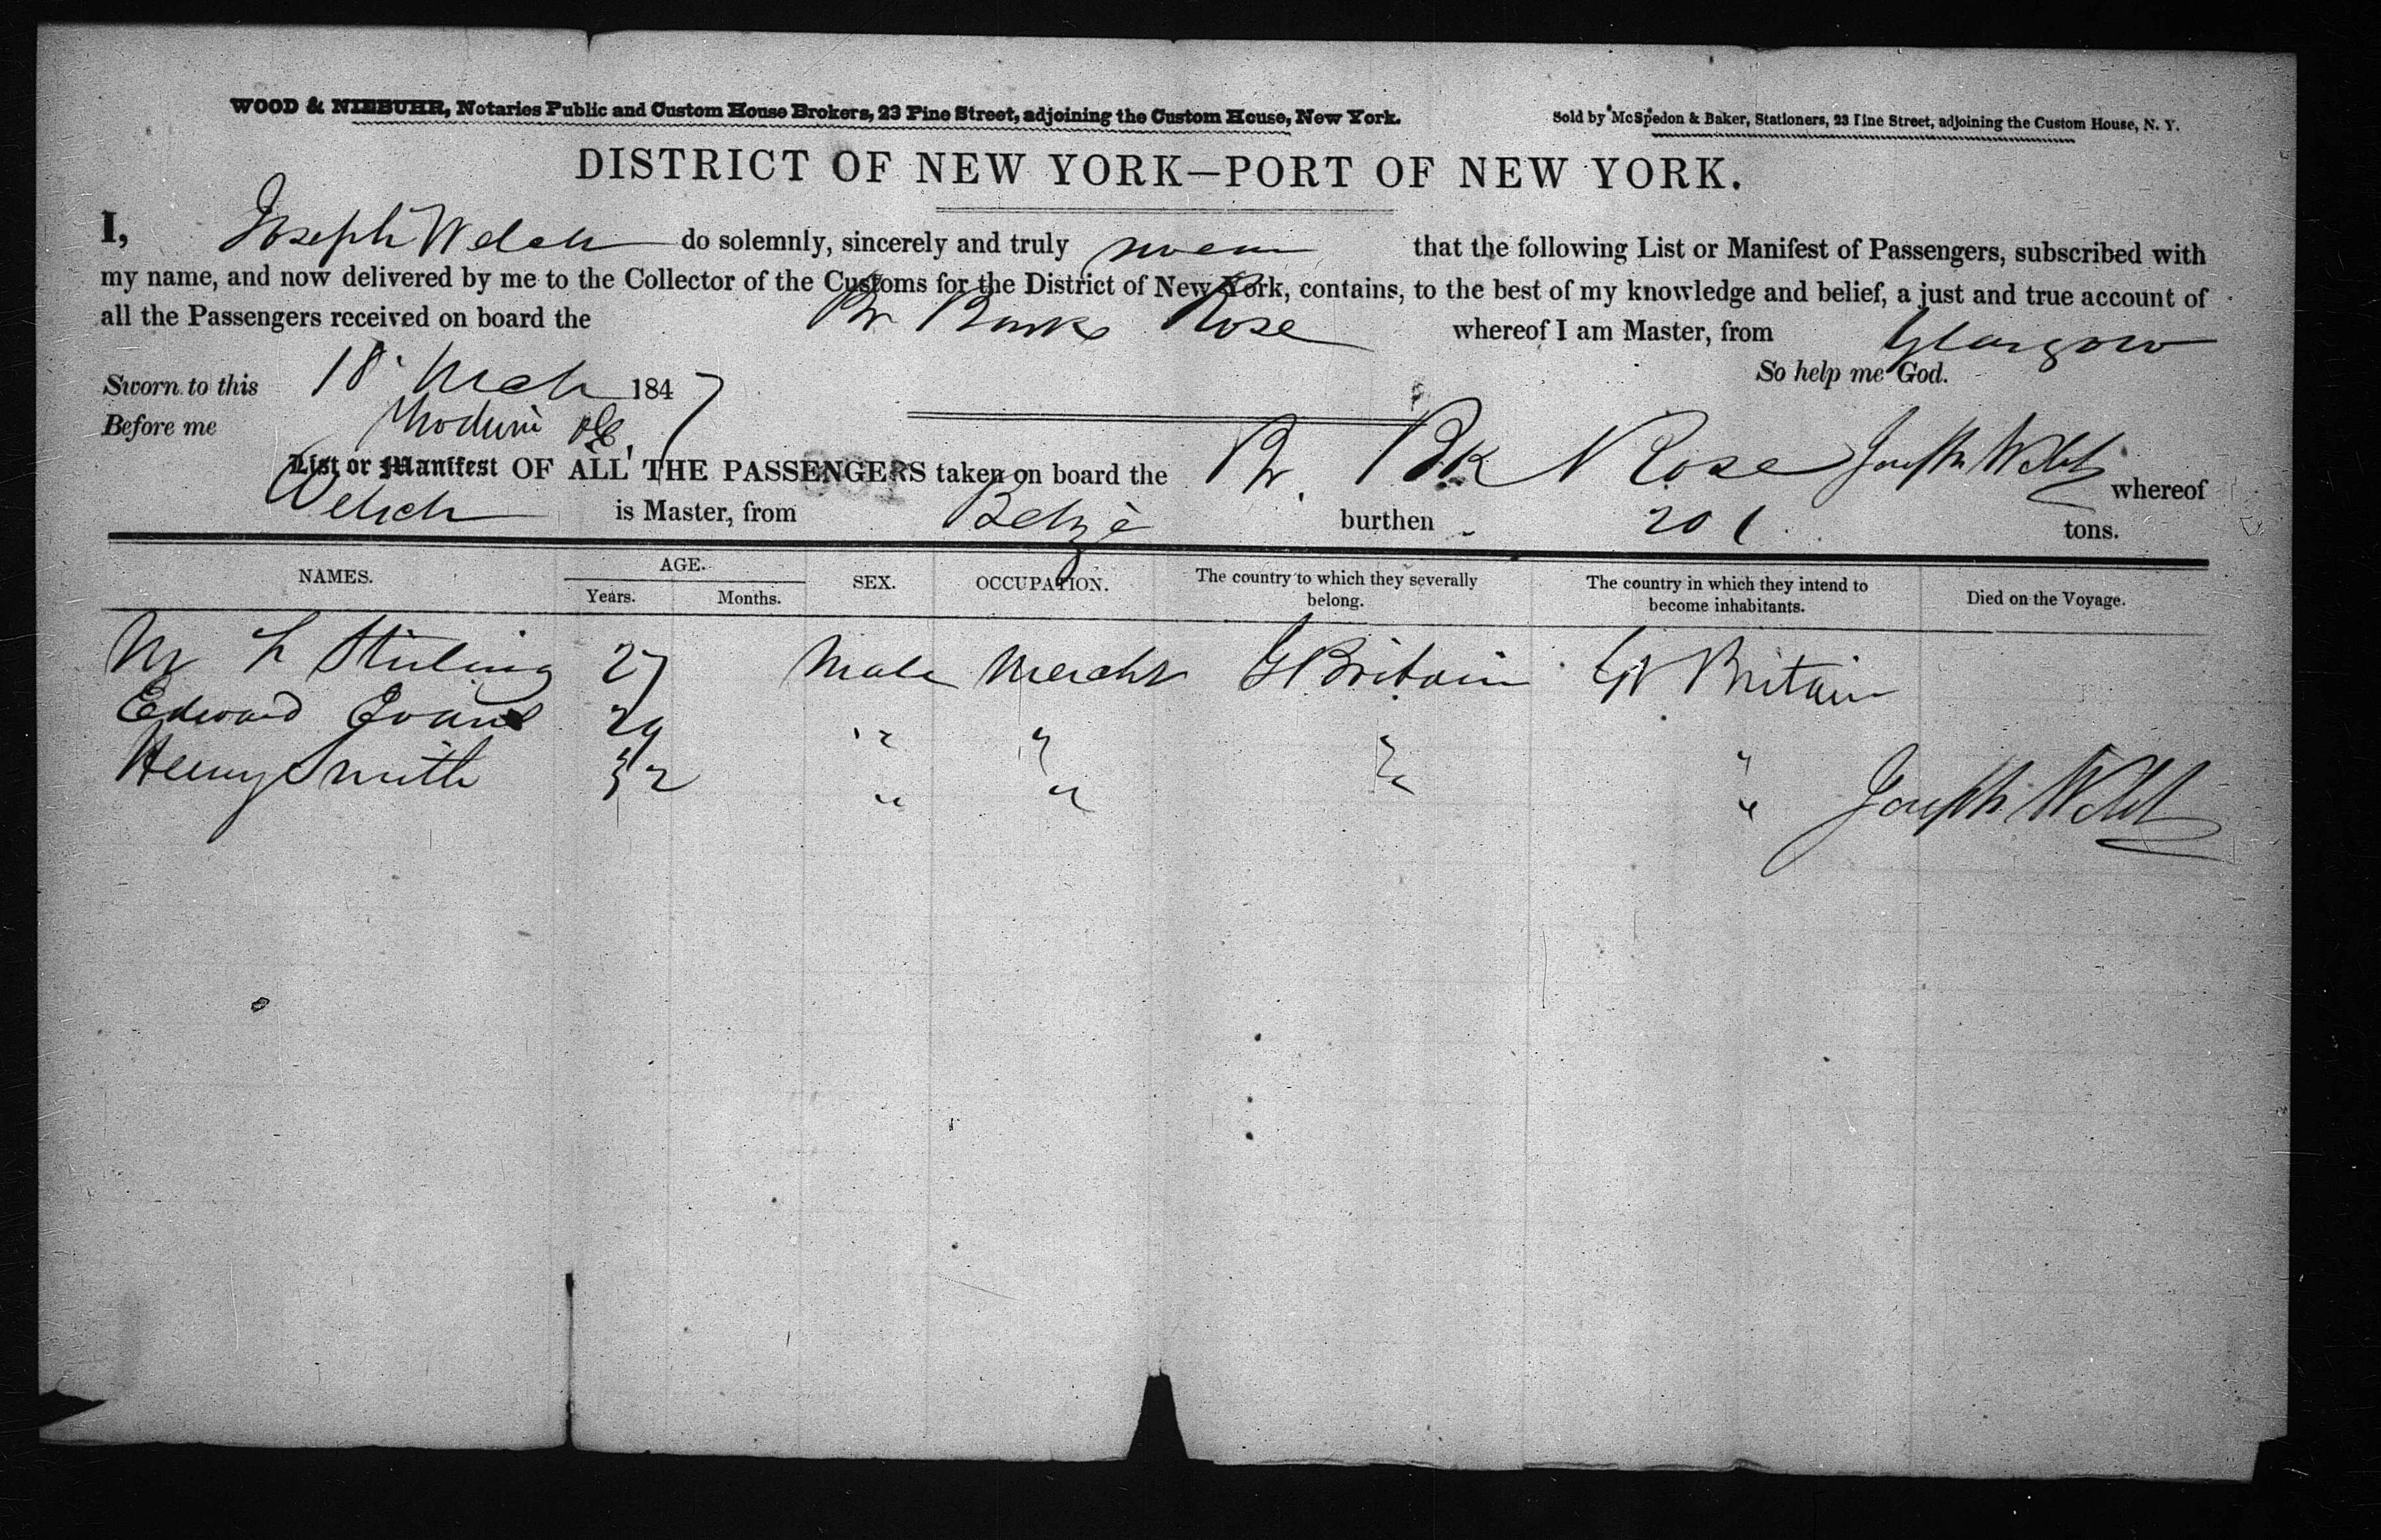 WOOD & NIEBUHR, Notaries Public and Custom House Brokers, 23 Pine Street, adjoining the Custom House, New York.
Sold by McSpedon & Baker, Stationers, 23 Pine Street, adjoining the Custom House, N. Y.
DISTRICT OF NEW YORK—PORT OF NEW YORK.
I, Joseph Welch do solemnly, sincerely and truly swear that the following List or Manifest of Passengers, subscribed with
my name, and now delivered by me to the Collector of the Customs for the District of New York, contains, to the best of my knowledge and belief, a just and true account of
all the Passengers received on board the Br Barke Rose whereof I am Master, from Glasgow
So help me God.
Sworn to this 18 Mch 1847
Before me
List or Manifest OF ALL THE PASSENGERS taken on board the Br. Bk Rose Joseph Welch whereof
Welsch is Master, from Belize burthen 201 tons.
NAMES. AGE. Years. Months. SEX. OCCUPATION. The country to which they severally belong. The country in which they intend to become inhabitants. Died on the Voyage.
Mr L Stirling 27 Male Mercht G Britain Gt Britain
Edward Evans 29 " " " "
Henry Smith 32 " " " "
Joseph Welch